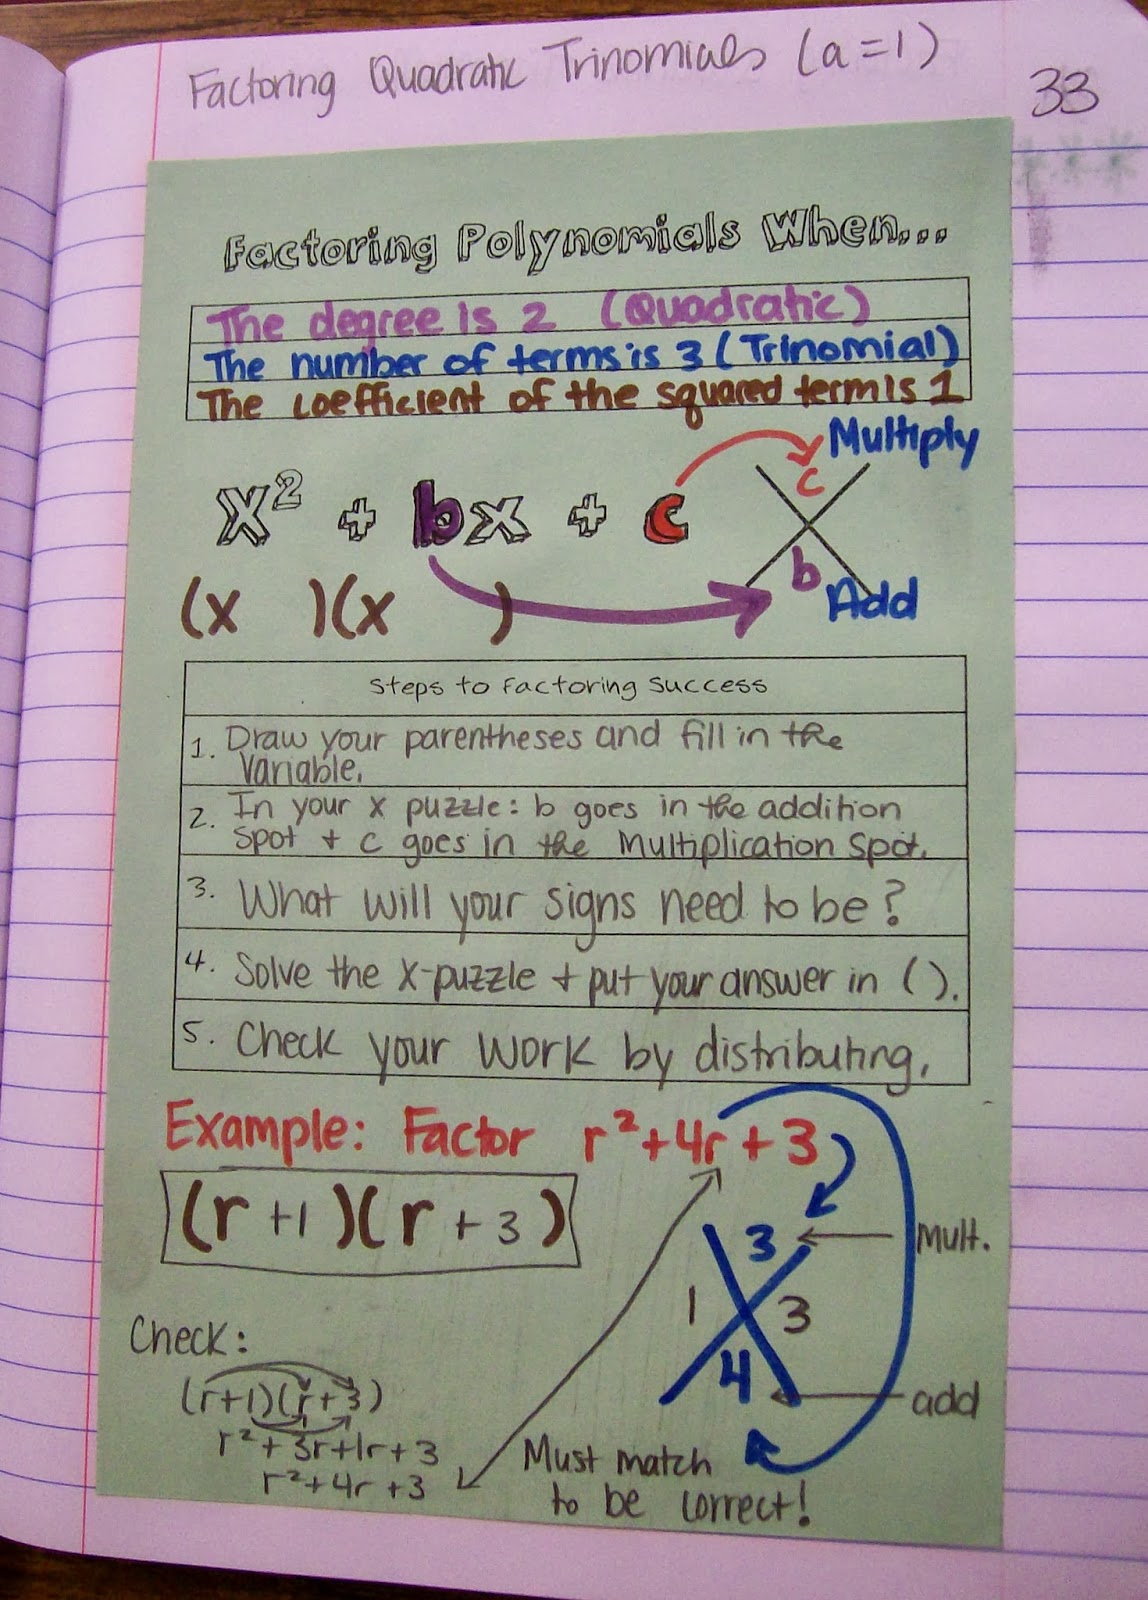 Factoring Quadratic Trinomials (a=1)
33
Factoring Polynomials When...
The degree is 2 (Quadratic)
The number of terms is 3 (Trinomial)
The coefficient of the squared term is 1
Multiply
x² + bx + c
c
b
Add
(x )(x )
Steps to Factoring Success
1. Draw your parentheses and fill in the
variable.
2. In your x puzzle: b goes in the addition
spot + c goes in the Multiplication Spot.
3. What will your signs need to be?
4. Solve the x-puzzle + put your answer in ( ).
5. Check your work by distributing.
Example: Factor r²+4r+3
(r +1)(r + 3)
3
mult.
1 3
4
add
Check:
(r+1)(r+3)
r²+3r+1r+3
r²+4r+3
Must match
to be correct!